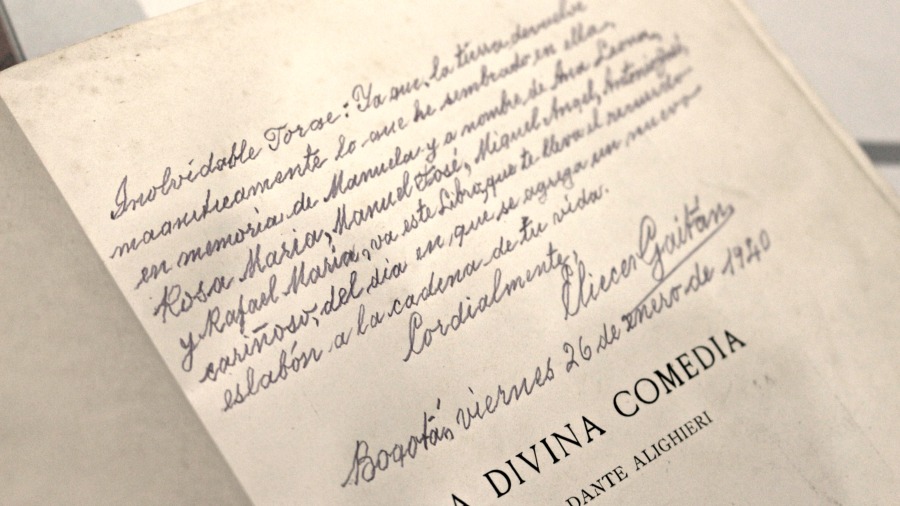 Inolvidable Jorge: Ya que la tierra devuelve
magníficamente lo que he sembrado en ella,
en memoria de Manuela y a nombre de Ana Leonor,
Rosa María, Manuel José, Miguel Angel, Antonio José,
y Rafael María, va este Libro, que te lleva el recuerdo
cariñoso, del día en que se agrega un nuevo
eslabón a la cadena de tu vida.
Cordialmente,
Eliecer Gaitán
Bogotá, viernes 26 de enero de 1940
A DIVINA COMEDIA
DANTE ALIGHIERI